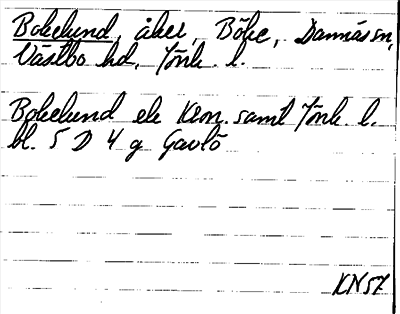 Bokelund, åker, Böke, Dannäs sn,
Västbo hd, Jönk. l.
Bokelund ek Kron. samt Jönk. l.
bl. 5 D 4 g Gavlö
KN57